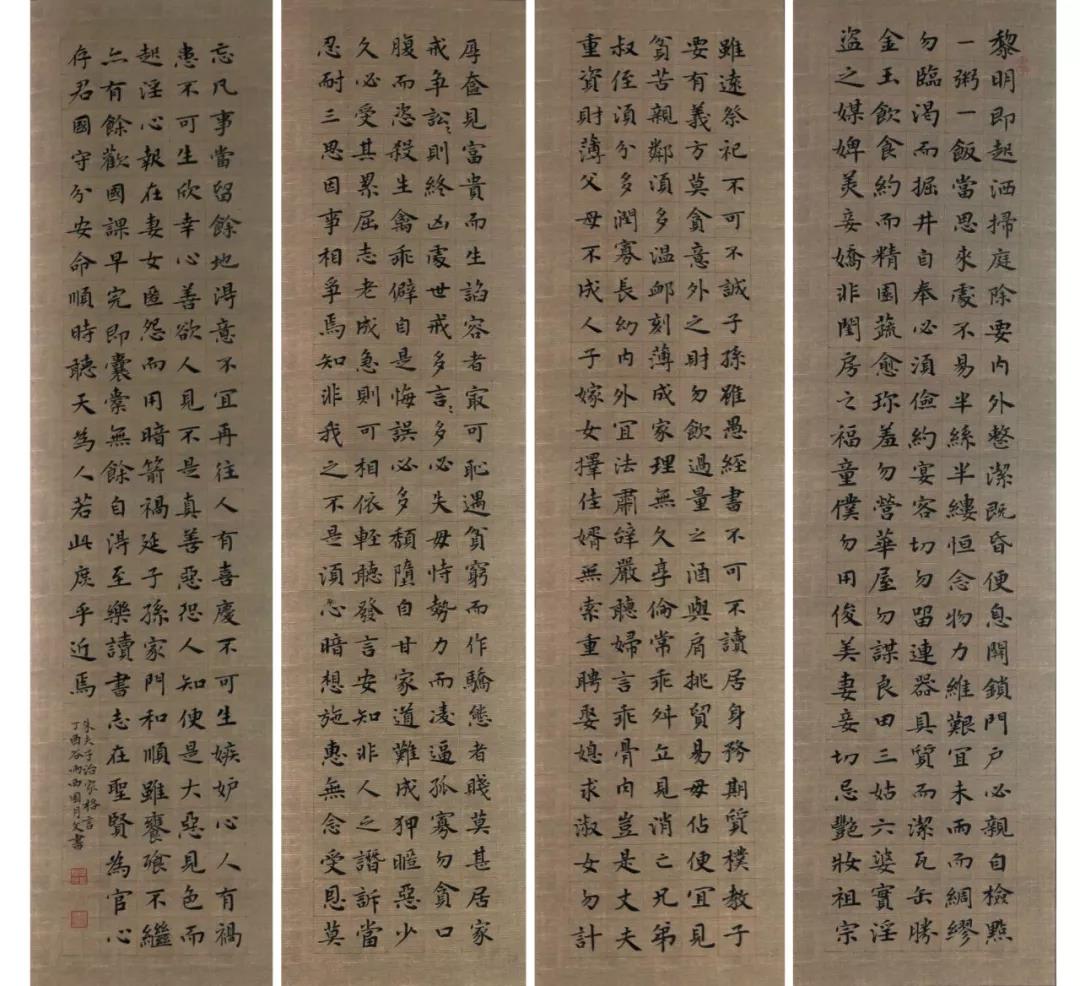 黎明即起洒掃庭除要內外整潔既昏便息關鎖門戶必親自檢點
一粥一飯當思來處不易半絲半縷恒念物力維艱宜未雨而綢繆
勿臨渴而掘井自奉必須儉約宴容切勿留連器具質而潔瓦缶勝
金玉飲食約而精園蔬愈珍羞勿營華屋勿謀良田三姑六婆實淫
盜之媒婢美妾嬌非閨房之福童僕勿用俊美妻妾切忌艷妝祖宗
雖遠祭祀不可不誠子孫雖愚經書不可不讀居身務期質樸教子
要有義方莫貪意外之財勿飲過量之酒與肩挑貿易毋佔便宜見
貧苦親鄰須多温卹刻薄成家理無久享倫常乖舛立見消亡兄弟
叔侄須分多潤寡長幼內外宜法肅辭嚴聽婦言乖骨肉豈是丈夫
重資財薄父母不成人子嫁女擇佳婿無索重聘娶媳求淑女勿計
厚奩見富貴而生諂容者最可恥遇貧窮而作驕態者賤莫甚居家
戒爭訟〻則終凶處世戒多言〻多必失毋恃勢力而凌逼孤寡勿貪口
腹而恣殺生禽乖僻自是悔誤必多頹墮自甘家道難成狎暱惡少
久必受其累屈志老成急則可相依輕聽發言安知非人之譖訴當
忍耐三思因事相爭焉知非我之不是須心暗想施惠無念受恩莫
忘凡事當留餘地得意不宜再往人有喜慶不可生嫉妒心人有禍
患不可生欣幸心善欲人見不是真善惡恐人知便是大惡見色而
起淫心報在妻女匿怨而用暗箭禍延子孫家門和順雖饔飧不繼
亦有餘歡國課早完即囊橐無餘自得至樂讀書志在聖賢為官心
存君國守分安命順時聽天為人若此庶乎近焉
朱夫子治家格言
丁酉谷雨西園月文書